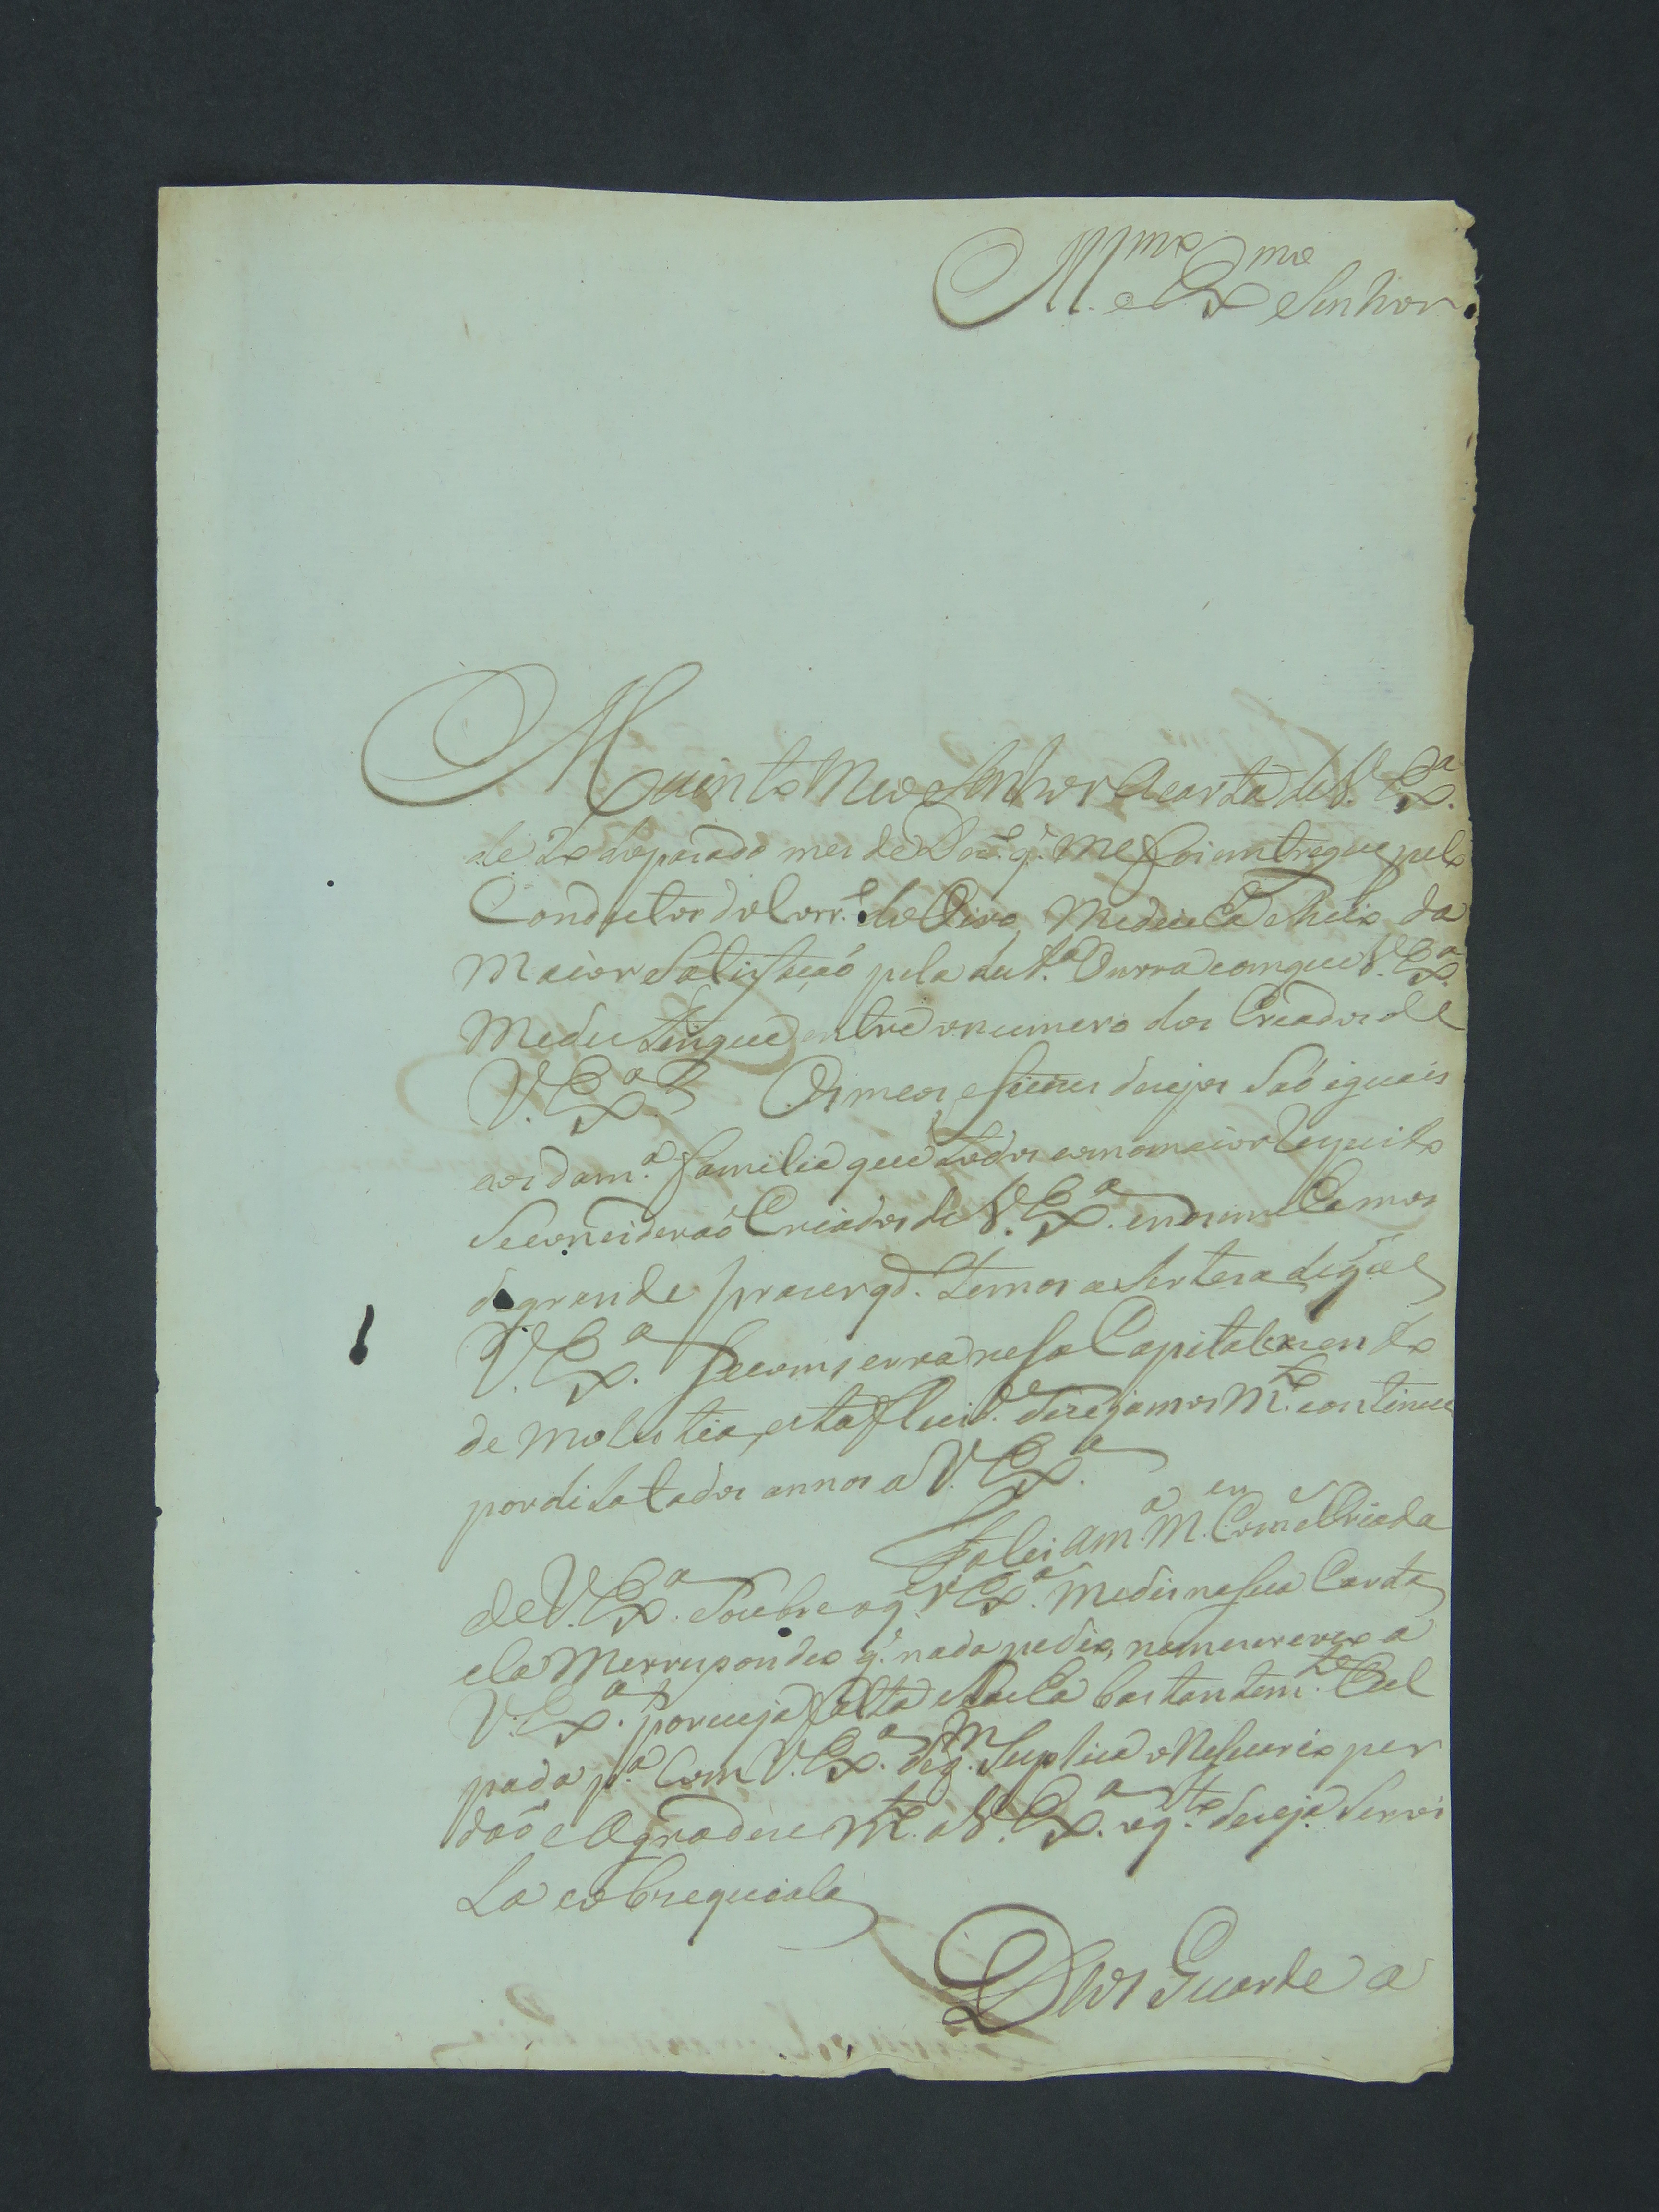 Ill.mo e Ex.mo Senhor
Muinto Meo Senhor A carta de V. Ex.a
de 20 do pasado mes de Dez.o q.' Me foi entregue pelo
Conductor do Corr.o do Oiro, Medeicha cheio da
Maior Satisfacaó pela dest.a Onrra com que V. Ex.a
Medestingue entre o numero dos Creados de
V. Ex.a Os meos, e fieis desejos Saó iguais
aos da m.a familia que todos com o maior Respeito
Seconcideraó Criados de V. Ex.a enos enchemos
de grande prazer qd.o temos a Serteza de q' e
V. Ex.a Secomserva nesa Capital exzento
de molestia, esta flecid.e desejamos M.to continue
por dilatados annos a V. Ex.a
Falei a m.a M.er Como Criada
de V. Ex.a Soubre o q.' V. Ex.a Medis na Sua Carta
ela Merrespondeo q.' nada pedio, nem escreveo a
V. Ex.a por cuja falta Seacha bastantem.te Cul
pada p.a Com V. Ex.a de q.m Suplica o Nesesario per
daó e Agradese M.to a V. Ex.a o q.to deseja Servi
La eobsequiala
Deos Guarde a